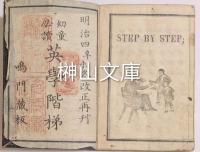 明治四年
改正再刋
幼童
必讀
英學階梯
鳴門藏板
STEP BY STEP;
榊山文庫